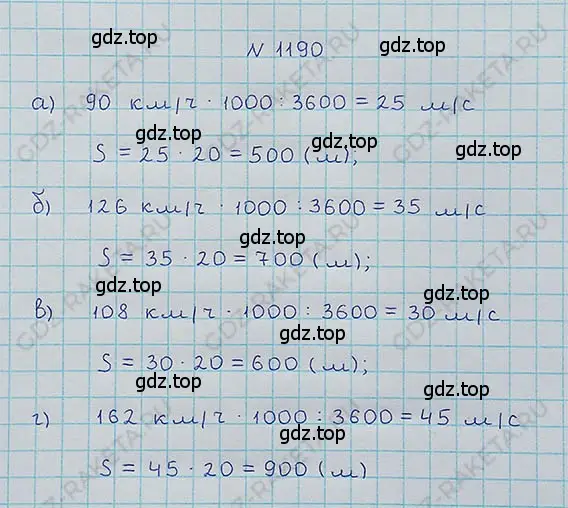 gdz.top
N 1190 gdz.top
а) 90 км/ч · 1000 : 3600 = 25 м/с
gdz.top gdz.top
S = 25 · 20 = 500 (м);
б) 126 км/ч · 1000 : 3600 = 35 м/с
gdz.top
S = 35 · 20 = 700 (м);
gdz.top
в) 108 км/ч · 1000 : 3600 = 30 м/с
gdz.top
S = 30 · 20 = 600 (м);
gdz.top gdz.top
г) 162 км/ч · 1000 : 3600 = 45 м/с
gdz.top
S = 45 · 20 = 900 (м)
GDZ-RAKETA.RU